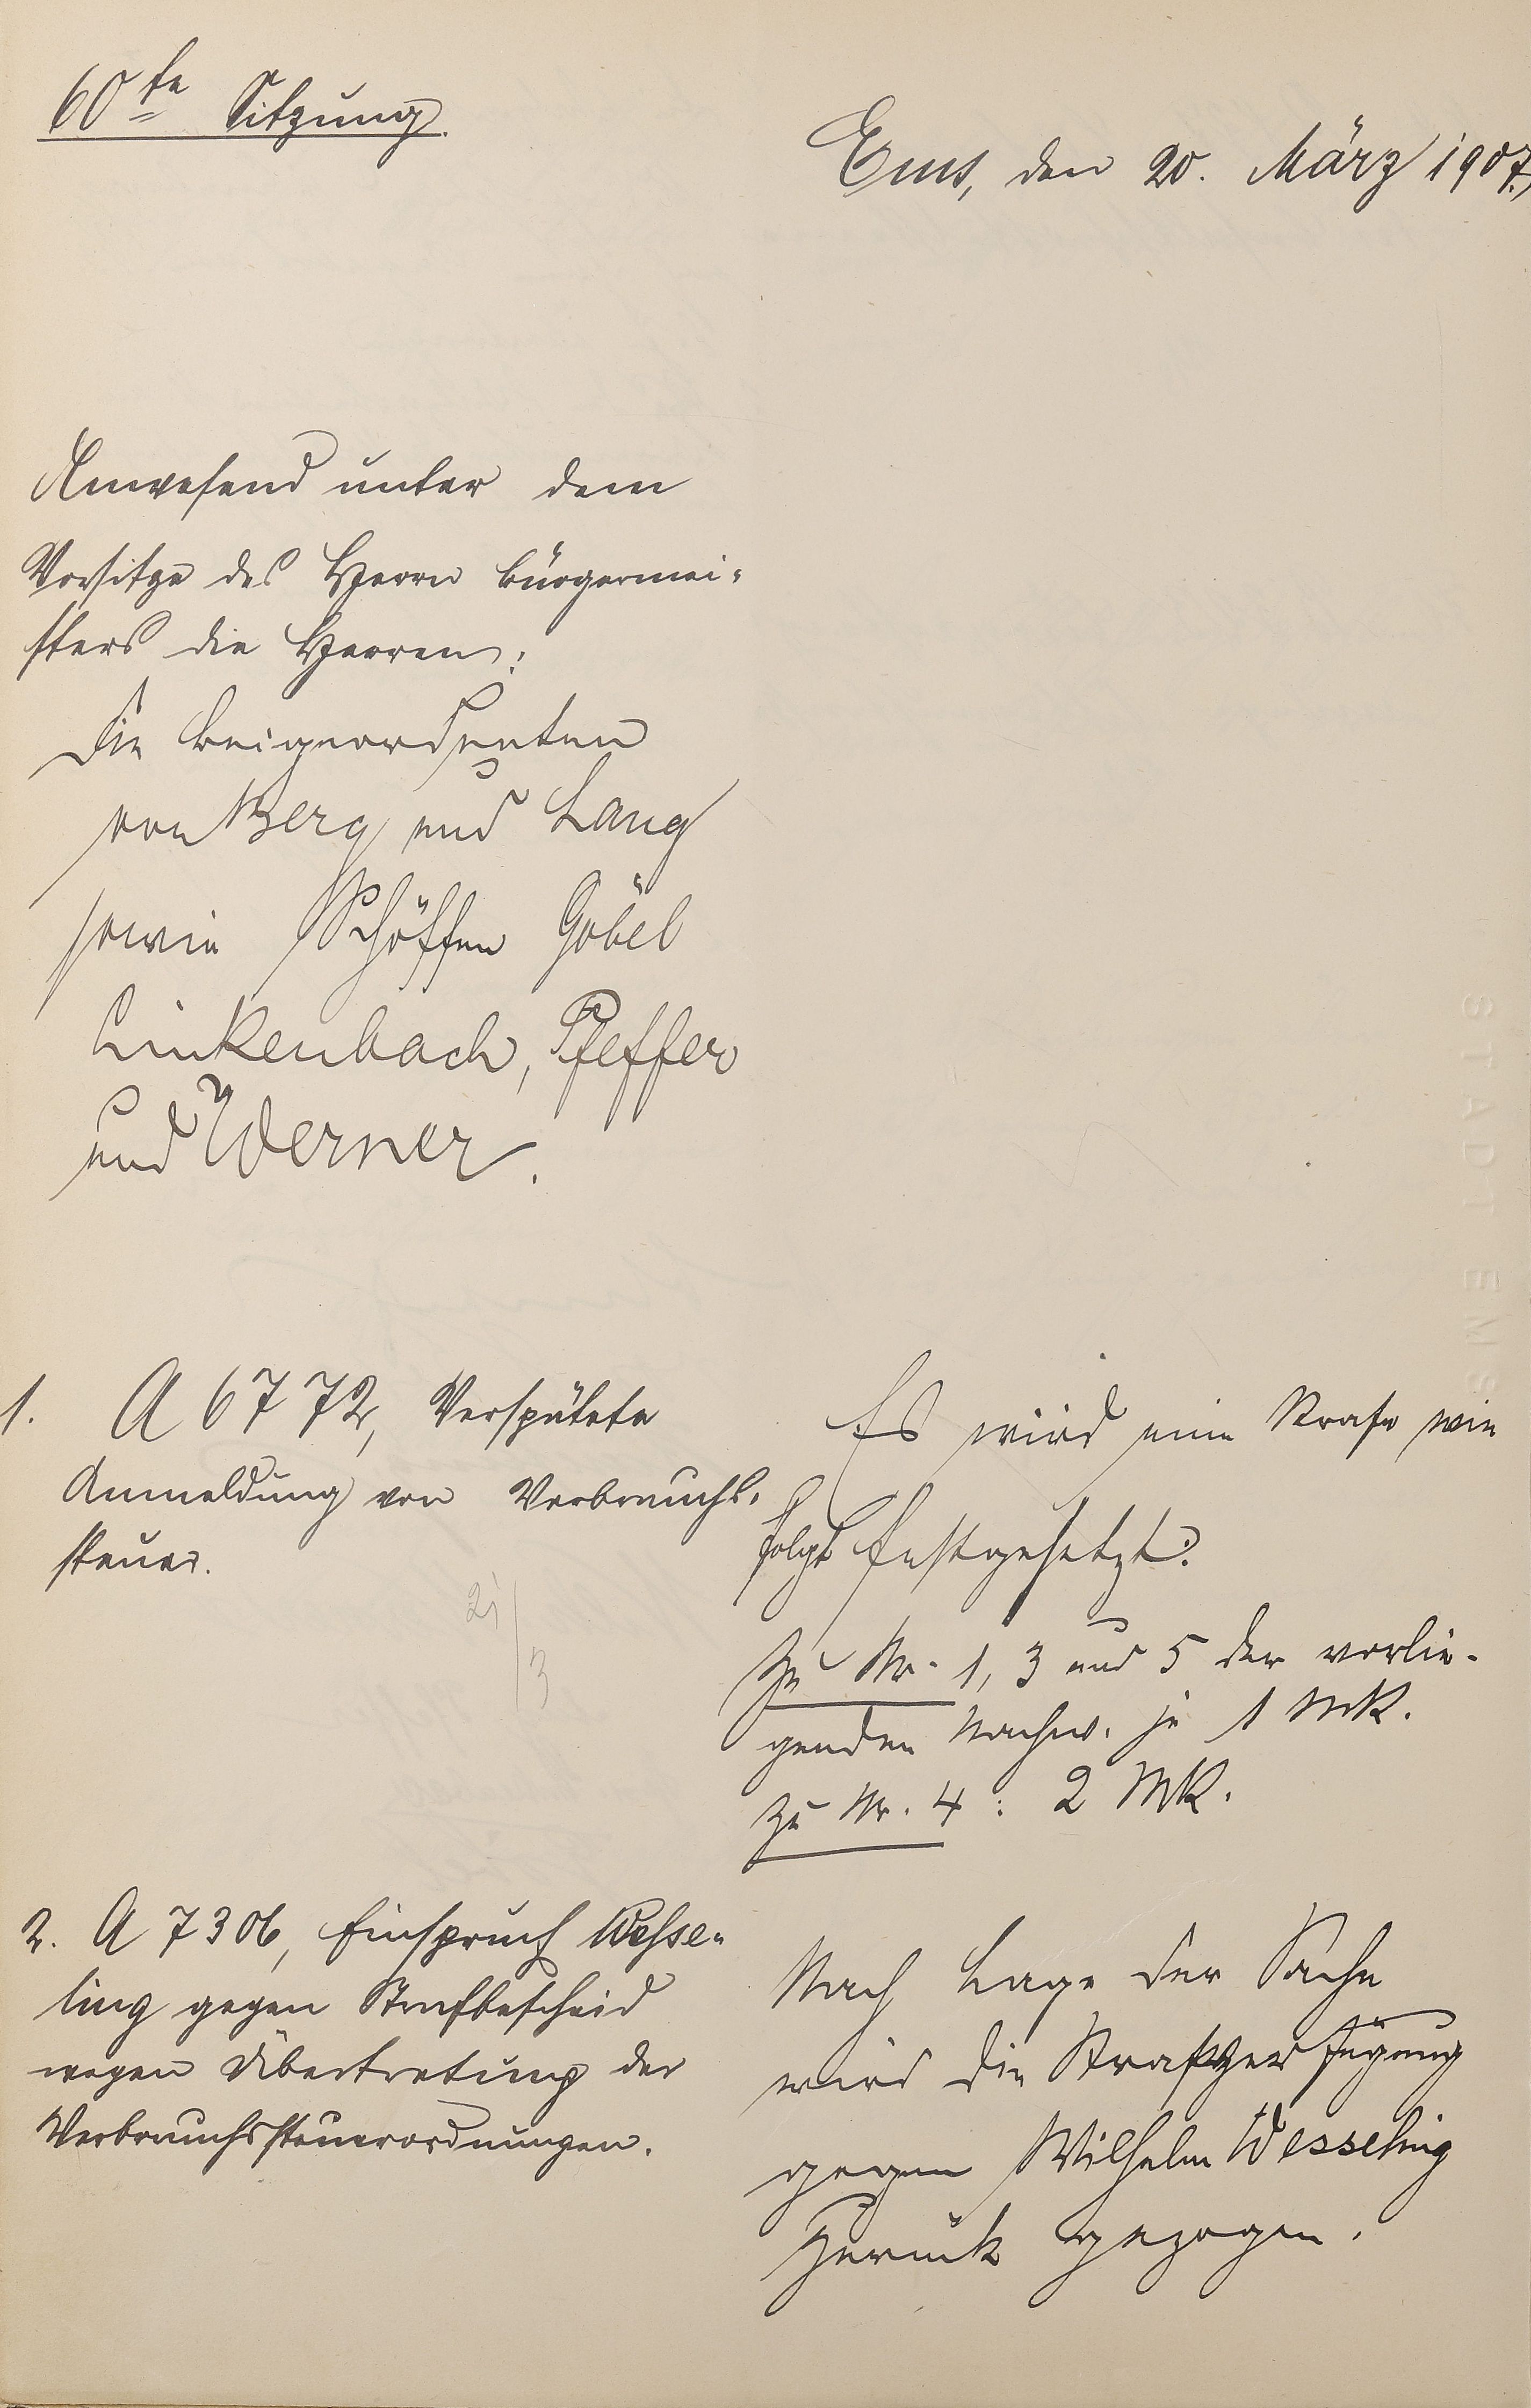 60te Sitzung.
Ems, den 20. März 1907.
Anwesend unter dem
Vorsitze des Herrn Bürgermei-
sters die Herren:
Die Beigeordneten
von Berg und Lang
sowie Schöffen Göbel
Linkenbach, Pfeffer
und Werner.
1. A 6772, Verspätete
Anmeldung von Verbrauchs-
steuer.
21/3
Es wird eine Strafe wie
folgt festgesetzt:
Zu Nr. 1, 3 und 5 der vorlie-
genden Nachw. je 1 MK.
zu Nr. 4: 2 MK.
2. A 7306, Einspruch Wesse-
ling gegen Strafbescheid
wegen Übertretung der
Verbrauchssteuerordnungen.
Nach Lage der Sache
wird die Strafverfügung
gegen Wilhelm Wesseling
zurück gezogen.
STADT EMS